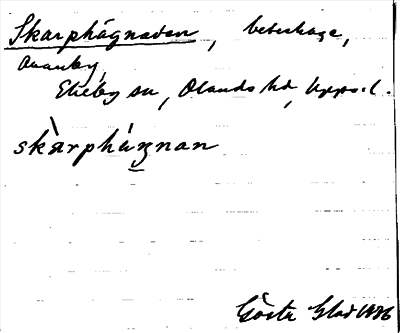 Skarphägnaden, beteshage,
Ånanby,
Ekeby sn, Olands hd, Upps. l.
skàrphä́gnan
Gösta Glad 1936